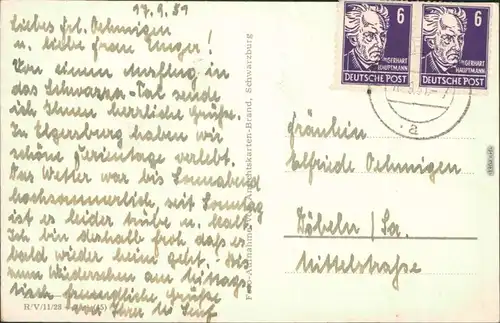 17.9.51
Liebes Frl. Oehmigen
u. liebe Frau Singer!
Von einem Ausflug in
das Schwarza-Tal sende
ich Ihnen herzliche Grüße.
In Elgersburg haben wir
schöne Ferientage verlebt.
Das Wetter war bis Sonnabend
hochsommerlich, seit Sonntag
ist es leider trübe u. kalt.
Ich bin deshalb froh daß es
bald wieder heim geht. Bis
zum Wiedersehen am Mittags-
tisch freundliche Grüße
von Ihrer
R/V/11/28
Foto-Aufnahme Ansichtskarten-Brand, Schwarzburg
6
GERHART
HAUPTMANN
DEUTSCHE POST
6
GERHART
HAUPTMANN
DEUTSCHE POST
a
Fräulein
Elfriede Oehmigen
Döbeln/Sa.
Mittelstraße